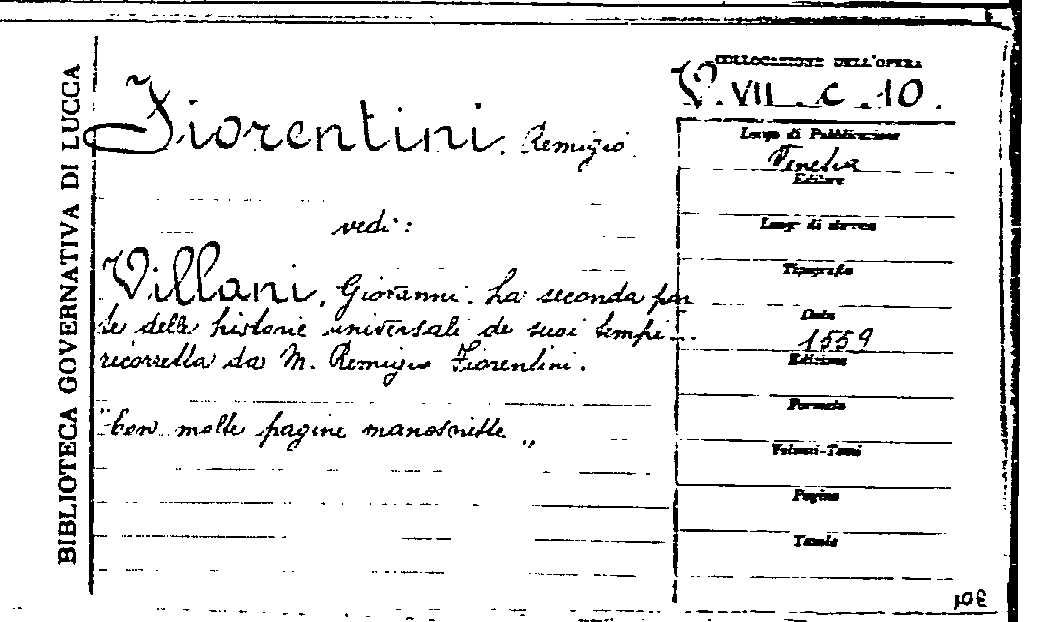 BIBLIOTECA GOVERNATIVA DI LUCCA
Fiorentini, Remigio.
vedi:
Villani, Giovanni. La seconda par
te delle historie universali de suoi tempi...
ricorretta da M. Remigio Fiorentini.
"Con molte pagine manoscritte„
COLLOCAZIONE DELL'OPERA
V. VII. C. 10.
Luogo di Pubblicazione
Venetia
Editore
Luogo di stampa
Tipografo
Data
1559
Edizione
Formato
Volumi-Tomi
Pagine
Tavole